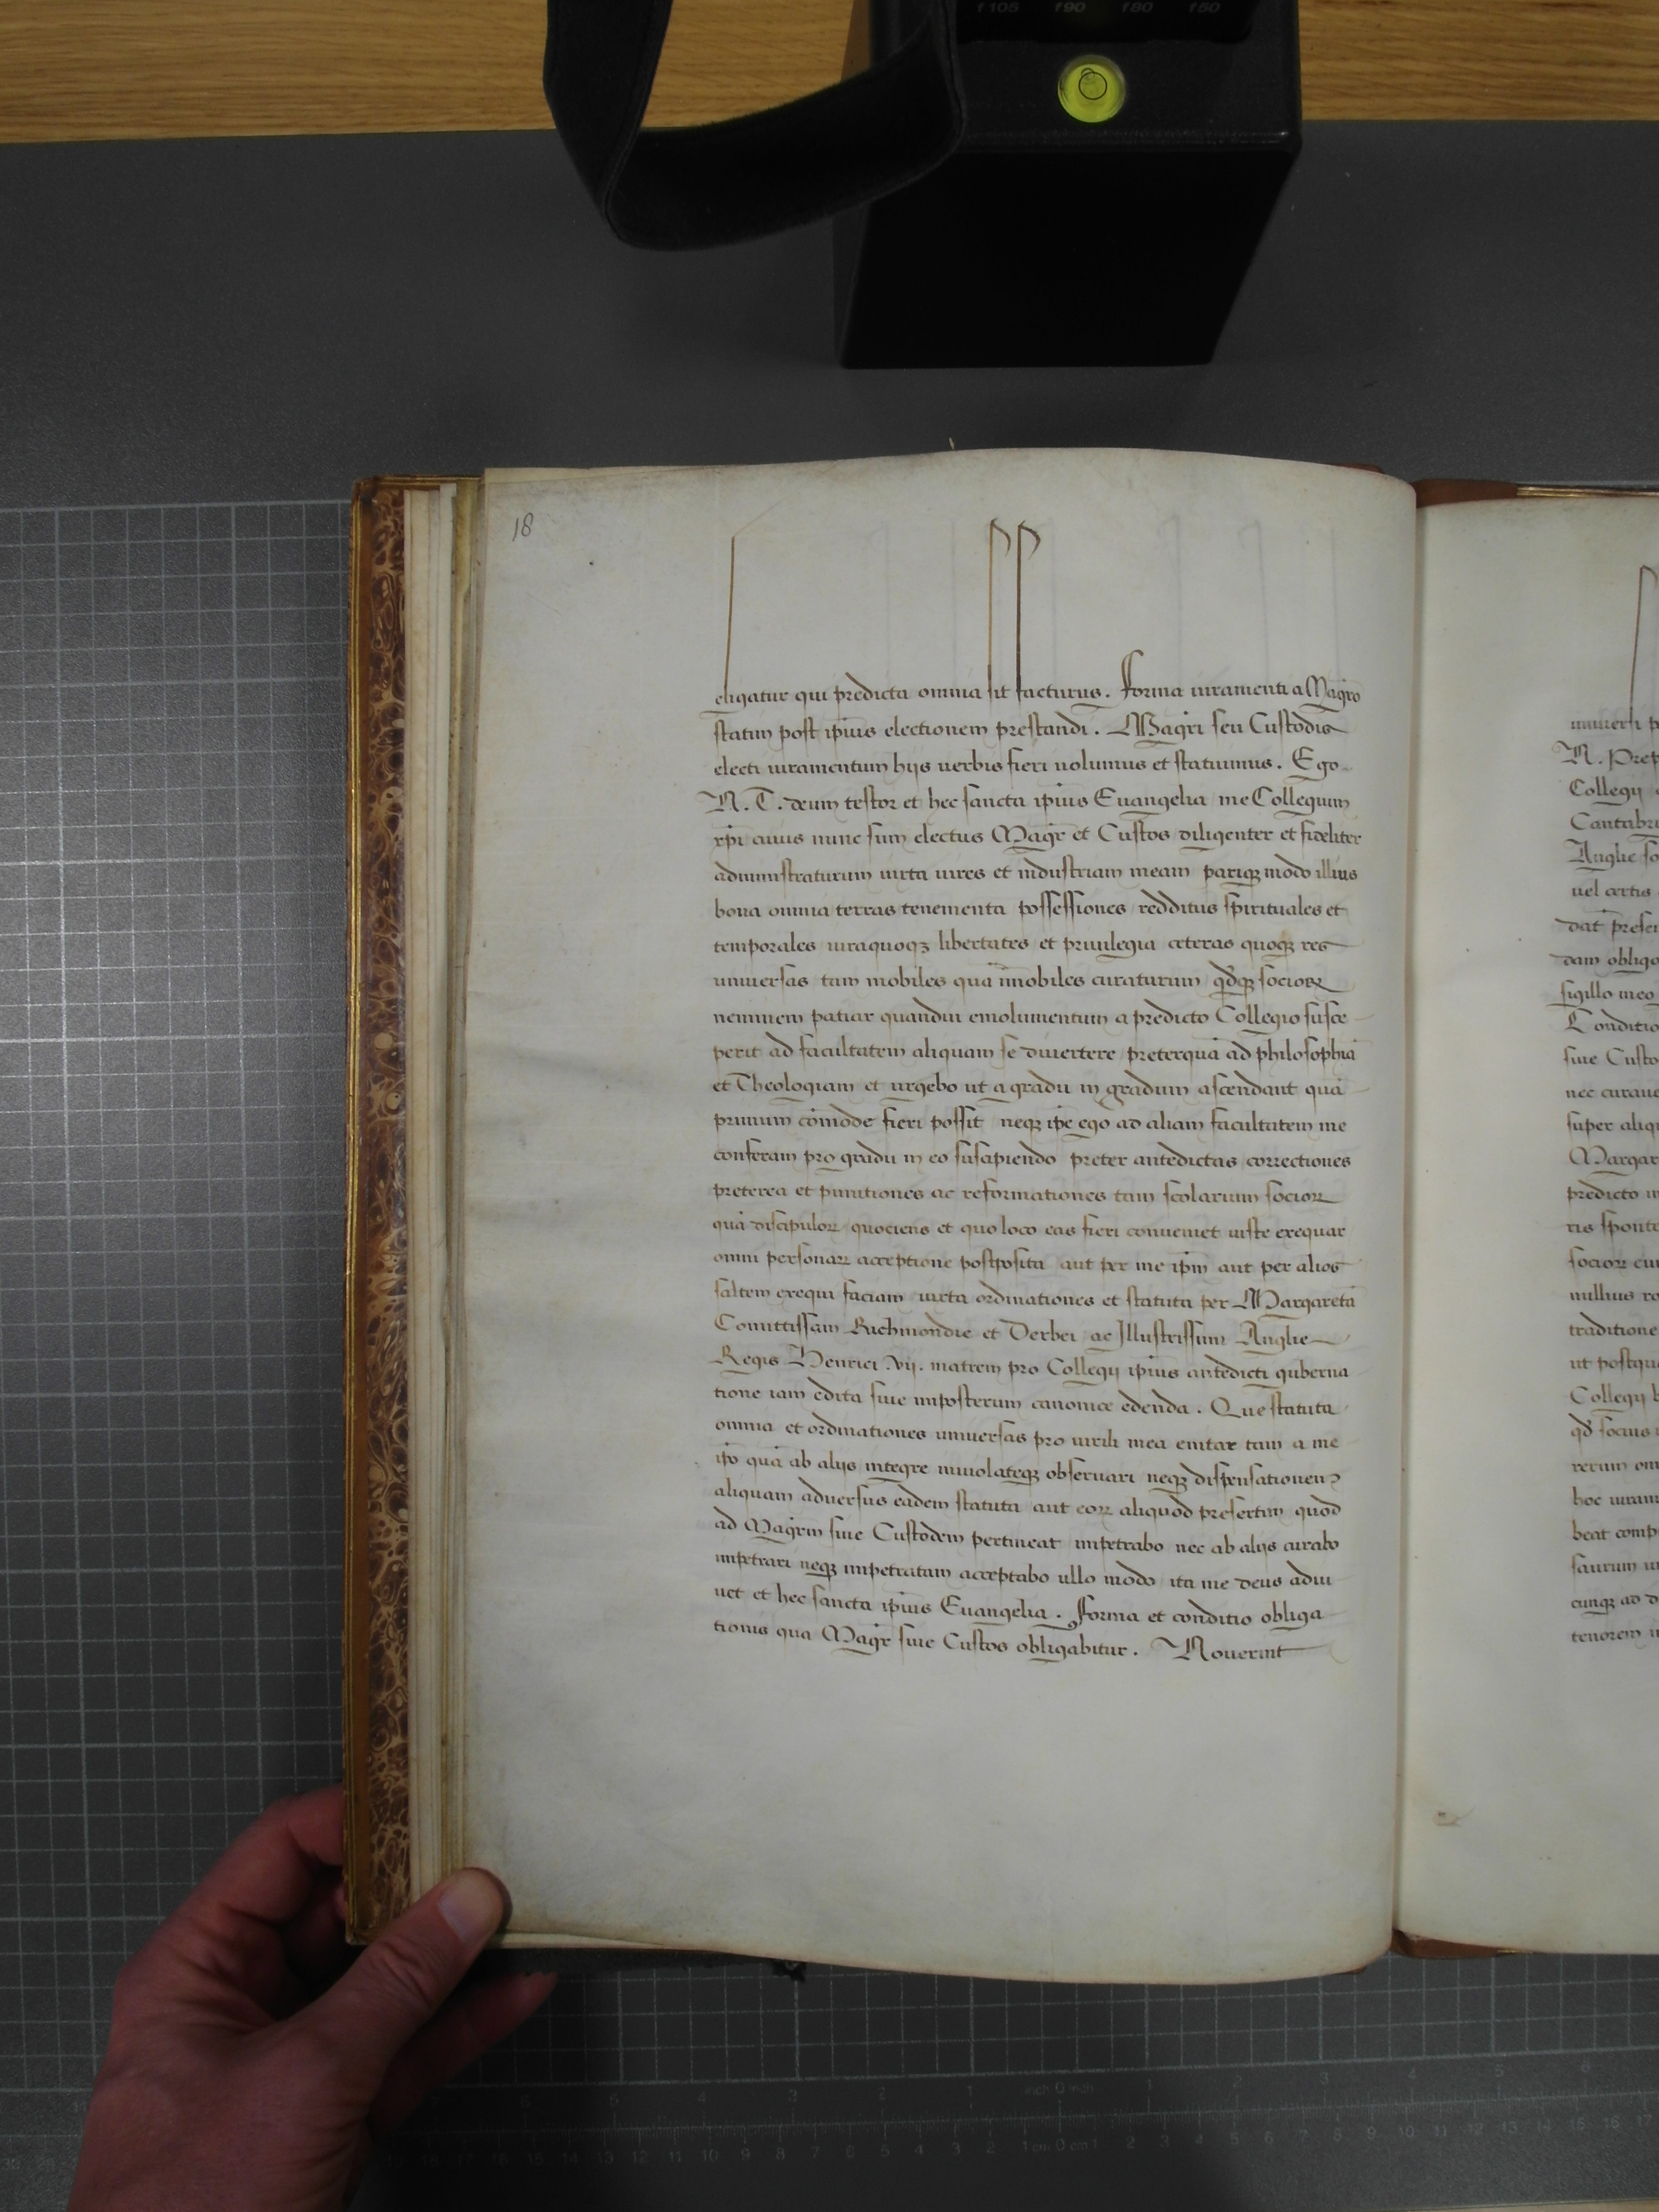 f105 f90 f80 f50
18
eligatur qui predicta omnia sit facturus. Forma iuramenti a Magro
statim post ipius electionem prestandi. Magri seu Custodis
electi iuramentum hijs uerbis fieri uolumus et statuimus. Ego
N. T. deum testor et hec sancta ipius Euangelia me Collegium
xpi cuius nunc sum electus Magr et Custos diligenter et fideliter
administraturum iuxta uires et industriam meam pariqz modo illius
bona omnia terras tenementa possessiones redditus spirituales et
temporales iuraquoqz libertates et priuilegia ceteras quoqz res
uniuersas tam mobiles quā īmobiles curaturum qdqz socioꝝ
neminem patiar quandiu emolumentum a predicto Collegio susce
perit ad facultatem aliquam se diuertere preterquā ad philosophiā
et Theologiam et urgebo ut a gradu in gradum ascendant quā
primum cōmode fieri possit neqz ipe ego ad aliam facultatem me
conferam pro gradu in eo suscipiendo preter antedictas correctiones
preterea et punitiones ac reformationes tam scolarium socioꝝ
quā discipuloꝝ quociens et quo loco eas fieri conueniet iuste exequar
omni personaꝝ acceptione postposita aut per me ipm aut per alios
saltem exequi faciam iuxta ordinationes et statuta per Margaretā
Comitissam Richmondie et Derbei ac Illustrissimi Anglie
Regis Henrici .vij. matrem pro Collegij ipius antedicti guberna
tione iam edita siue imposterum canonice edenda. Que statuta
omnia et ordinationes uniuersas pro uirili mea enitar tam a me
ipo quā ab alijs integre inuiolateqz obseruari neqz dispensationem
aliquam aduersus eadem statuta aut eoꝝ aliquod presertim quod
ad Magrm siue Custodem pertineat impetrabo nec ab alijs curabo
impetrari neqz impetratam acceptabo ullo modo ita me deus adiu
uet et hec sancta ipius Euangelia. Forma et conditio obliga
tionis qua Magr siue Custos obligabitur. Nouerint
uniuersi
N.
Collegij
Anglie
uel certis
dat
dam
sigillo meo
Conditio
siue
nec
super
predicto
nullius
traditione
ut
Collegij
qd socius
rerum
hoc
beat
saurum
cunqz ad
tenorem
inch 0 inch
1 cm 0 cm 1